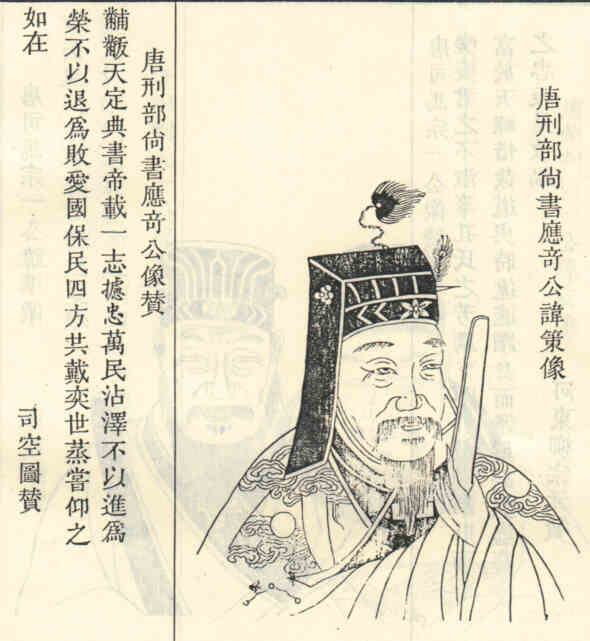 唐刑部尚書應竒公諱策像
唐刑部尚書應竒公像贊
黼黻天定典書帝載一志攄忠萬民沾澤不以進爲
榮不以退爲敗愛國保民四方共戴奕世蒸嘗仰之
如在
司空圖贊